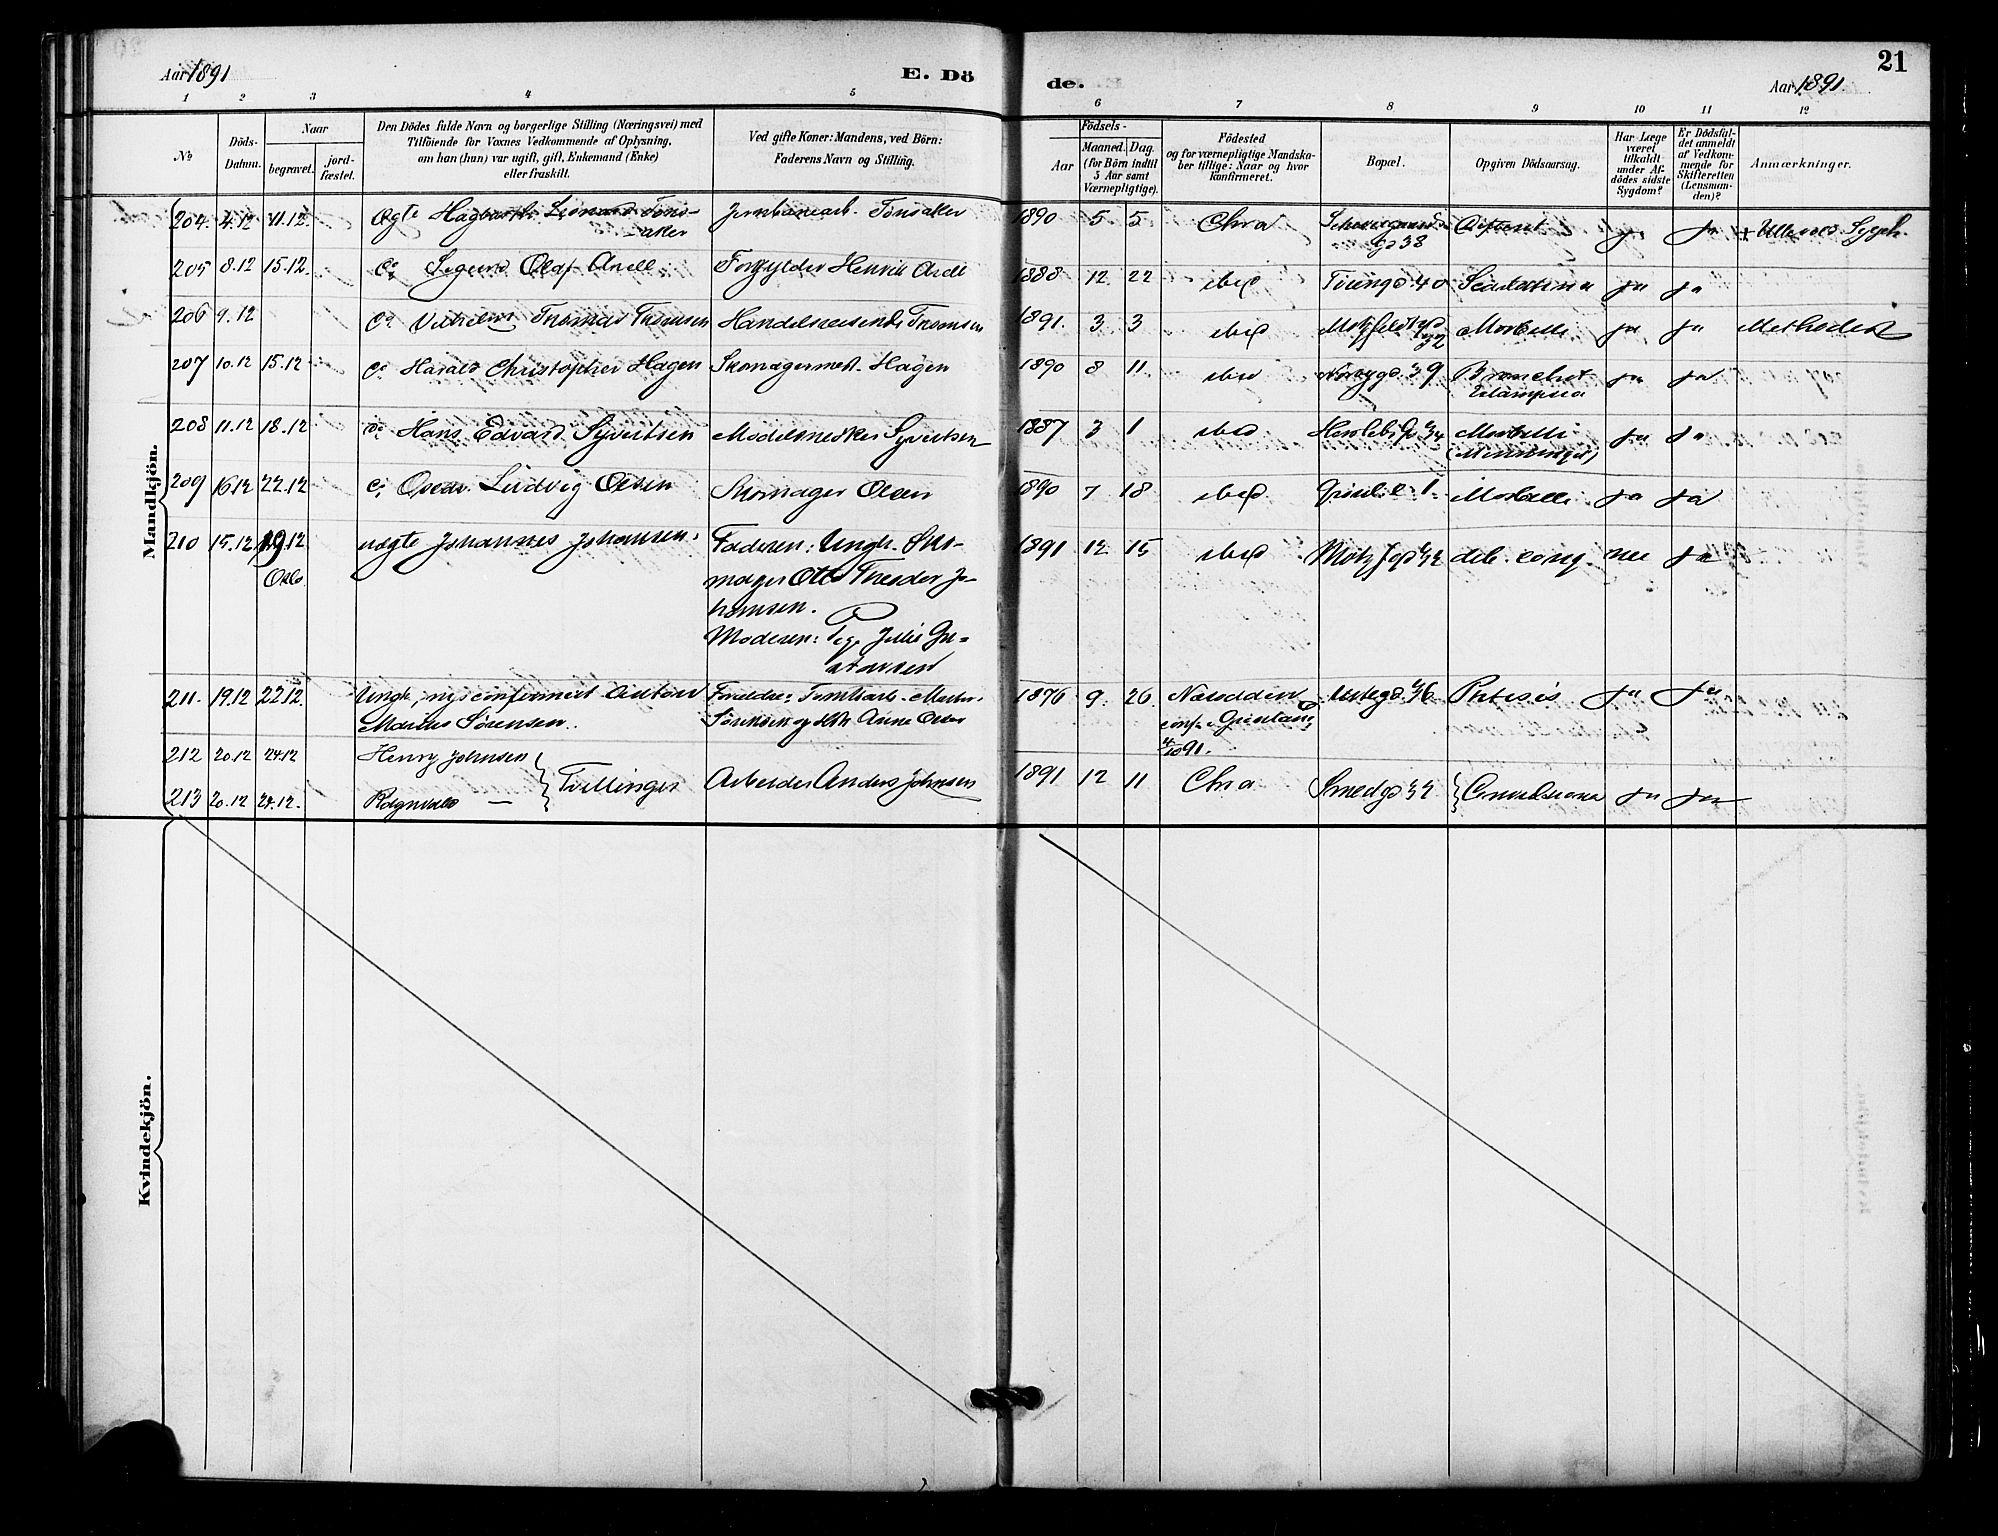 Aar 1891
E. Dö
de.
Aar 1891.
21
1 2 3 4 5 6 7 8 9 10 11 12
No
Döds-
Datum.
Naar
begravet.
jord-
fæstet.
Den Dödes fulde Navn og borgerlige Stilling (Næringsvei) med
Tilföiende for Voxnes Vedkommende af Oplysning,
om han (hun) var ugift, gift, Enkemand (Enke)
eller fraskilt.
Ved gifte Koner: Mandens, ved Börn:
Faderens Navn og Stilling.
Födsels-
Aar
Maaned. Dag.
(for Börn indtil
5 Aar samt
Værnepligtige).
Födested
og for værnepligtige Mandska-
ber tillige: Naar og hvor
konfirmeret.
Bopæl.
Opgiven Dödsaarsag.
Har Læge
været
tilkaldt
under Af-
dödes sidste
Sygdom?
Er Dödsfal-
det anmeldt
af Vedkom-
mende for
Skifteretten
(Lensman-
den)?
Anmærkninger.
Mandkjön.
204. 4.12 11.12. Ægte Hagbarth Leonard Tons-
aker
Jernbanearb. Tonsaker 1890 5 5 Chra
gd 38 ja ja + Ullevaal Sygeh.
205 8.12 15.12. do Sigurd Olaf Arell Forgylder Henrik Arell 1888 12. 22 ibid 40 Scarlatina ja ja
206 9.12 do Vilhelm Thomas Thomsen Handelsreisende Thomsen 1891. 3 3 ibid Motzfeldtgd
32 Morbilli ja ja Methodist
207 10.12 15.12 do Harald Christopher Hagen Skomagermest. Hagen 1890 8 11 ibid Norbygd 39 Bronchit
Eclampsia ja ja
208 11.12 18.12 do Hans Edvard Syvertsen Modelsnedker Syvertsen 1887 3 1 ibid Herslebsgd 34 Morbilli
(Meningit) ja ja
209 16.12 22.12 do Oscar Ludvig Olsen Skomager Olsen 1890 7 18 ibid 1. Morbilli ja ja
210 15.12 19.12
Oslo.
uægte Johannes Johansen. Faderen: Ungk. Sko-
mager Otto Theodor Jo-
hansen.
Moderen: Pige Julie Gu-
stavsen
1891 12 15 ibid Motzfgd 32 deb. cong. nei ja
211. 19.12 22.12. Ungk., nys confirmeret Anton
Marius Sørensen.
Forældre: Tomtearb. Martin
Sørensen og Hstr Anne Olsen
1876 9. 26. Næsodden
conf. i Grønland
4/10 91.
36 Phtisis ja ja
212 20.12 24.12 Henry Johnsen
213 20.12 24.12. Ragnvald —
} Tvillinger Arbeider Anders Johnsen 1891 12 11 Chra Smedgd 32 { Convulsiones ja ja
Kvindekjön.